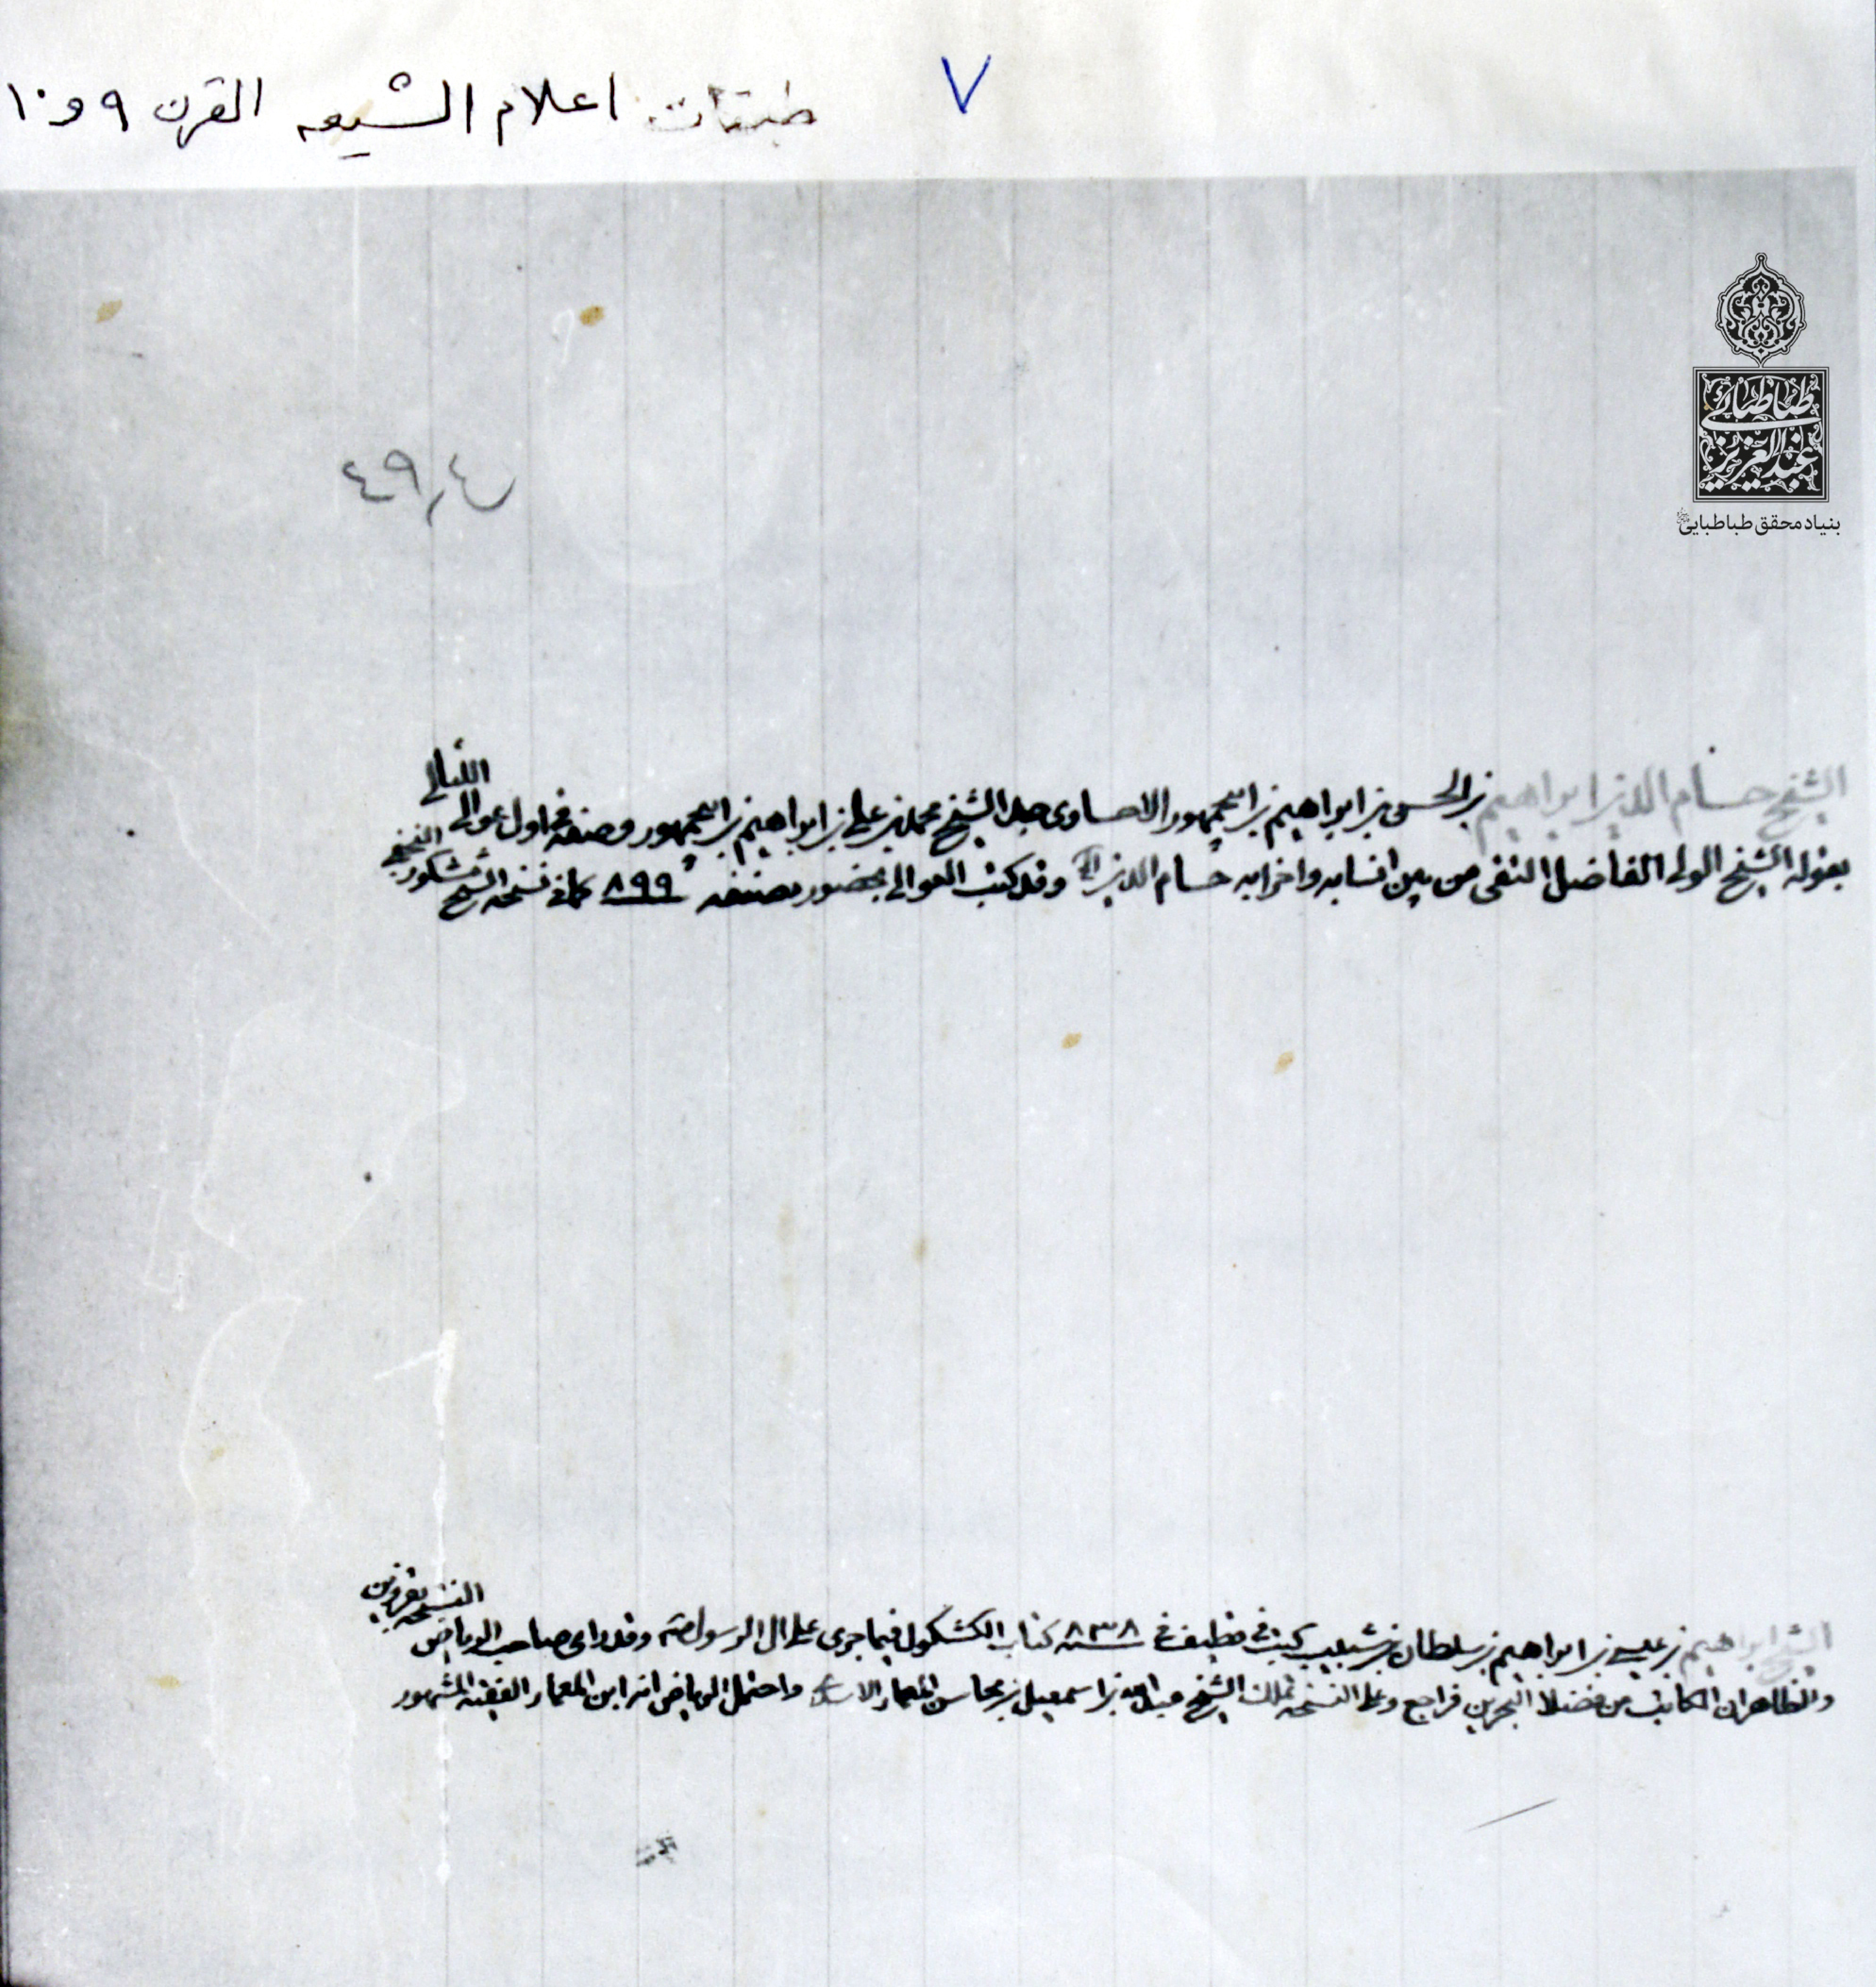 ٧
طبقات اعلام الشيعه القرن ٩ و ١٠
طباطبائی
عبدالعزیز
بنیاد محقق طباطبایی
الشيخ حسام الدين ابراهيم بن الحسن بن ابراهيم بن ابيجمهور الاحساوى جد الشيخ محمد بن على بن ابراهيم بن ابيجمهور وصفه فى اول عوالى اللئالى
بقوله الشيخ المولى الفاضل التقى من بين انسابه واضرابه حسام الدين الخ وقد كتب العوالى بحضور مصنفه ٨٩٩ كما فى نسخه الشيخ مشكور النجفى
الشيخ ابراهيم بن عيسى بن ابراهيم بن سلطان بن شبيب كتب فى قطيف فى سنه ٨٣٨ كتاب الكشكول فيما جرى على ال الرسول ص وقد راى صاحب الرياض النسخه بقزوين
والظاهر ان الكاتب من فضلاء البحرين فراجع وعلى النسخه تملك الشيخ عبد الله بن اسمعيل بن محاسن المعمار واحتمل الرياض انه ابن المعمار الفقيه المشهور